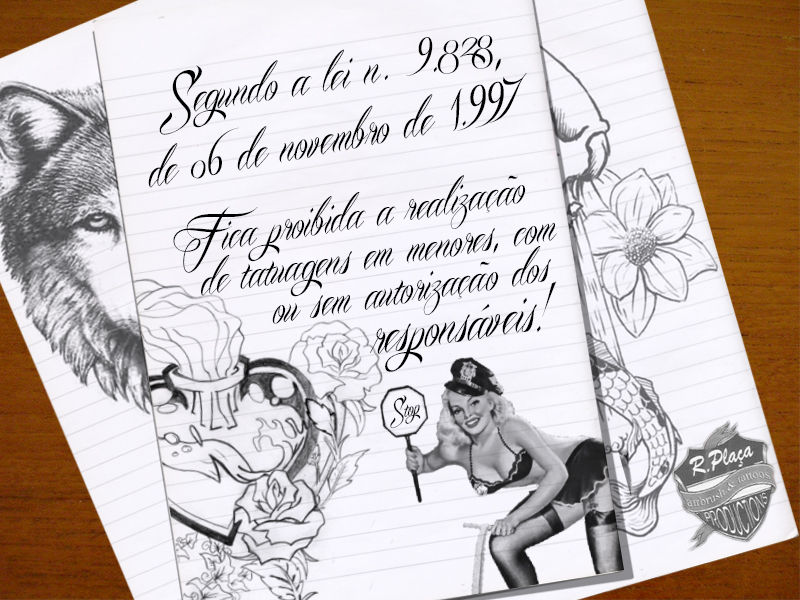 Segundo a lei n. 9.828,
de 06 de novembro de 1.997
Fica proibida a realização
de tatuagens em menores, com
ou sem autorização dos
responsáveis!
Stop
R.Plaça
airbrush & tattoos
PRODUCTIONS